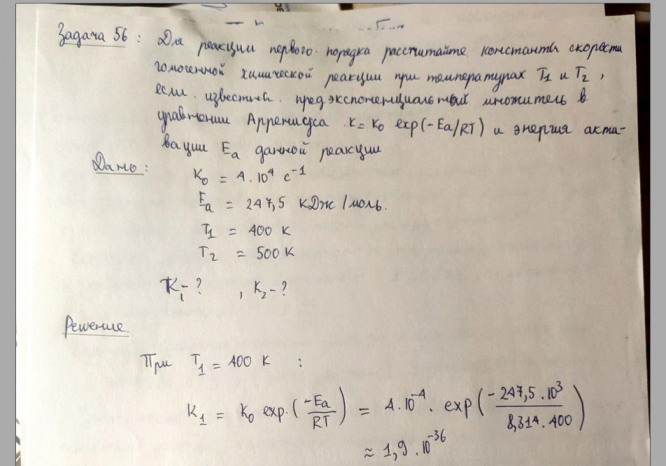 Задача 56: Для реакции первого порядка рассчитайте константы скорости
гомогенной химической реакции при температурах T₁ и T₂,
если известны предэкспоненциальный множитель в
уравнении Аррениуса k = k₀ exp(-Ea/RT) и энергия акти-
вации Ea данной реакции
Дано:
K₀ = 4.10⁴ c⁻¹
Ea = 247,5 кДж/моль.
T₁ = 400 K
T₂ = 500 K
K₁ - ? , K₂ - ?
Решение
При T₁ = 400 K :
K₁ = K₀ exp.(-Ea/RT) = 4.10⁻⁴. exp(-247,5.10³/8,314.400)
≈ 1,9.10⁻³⁶